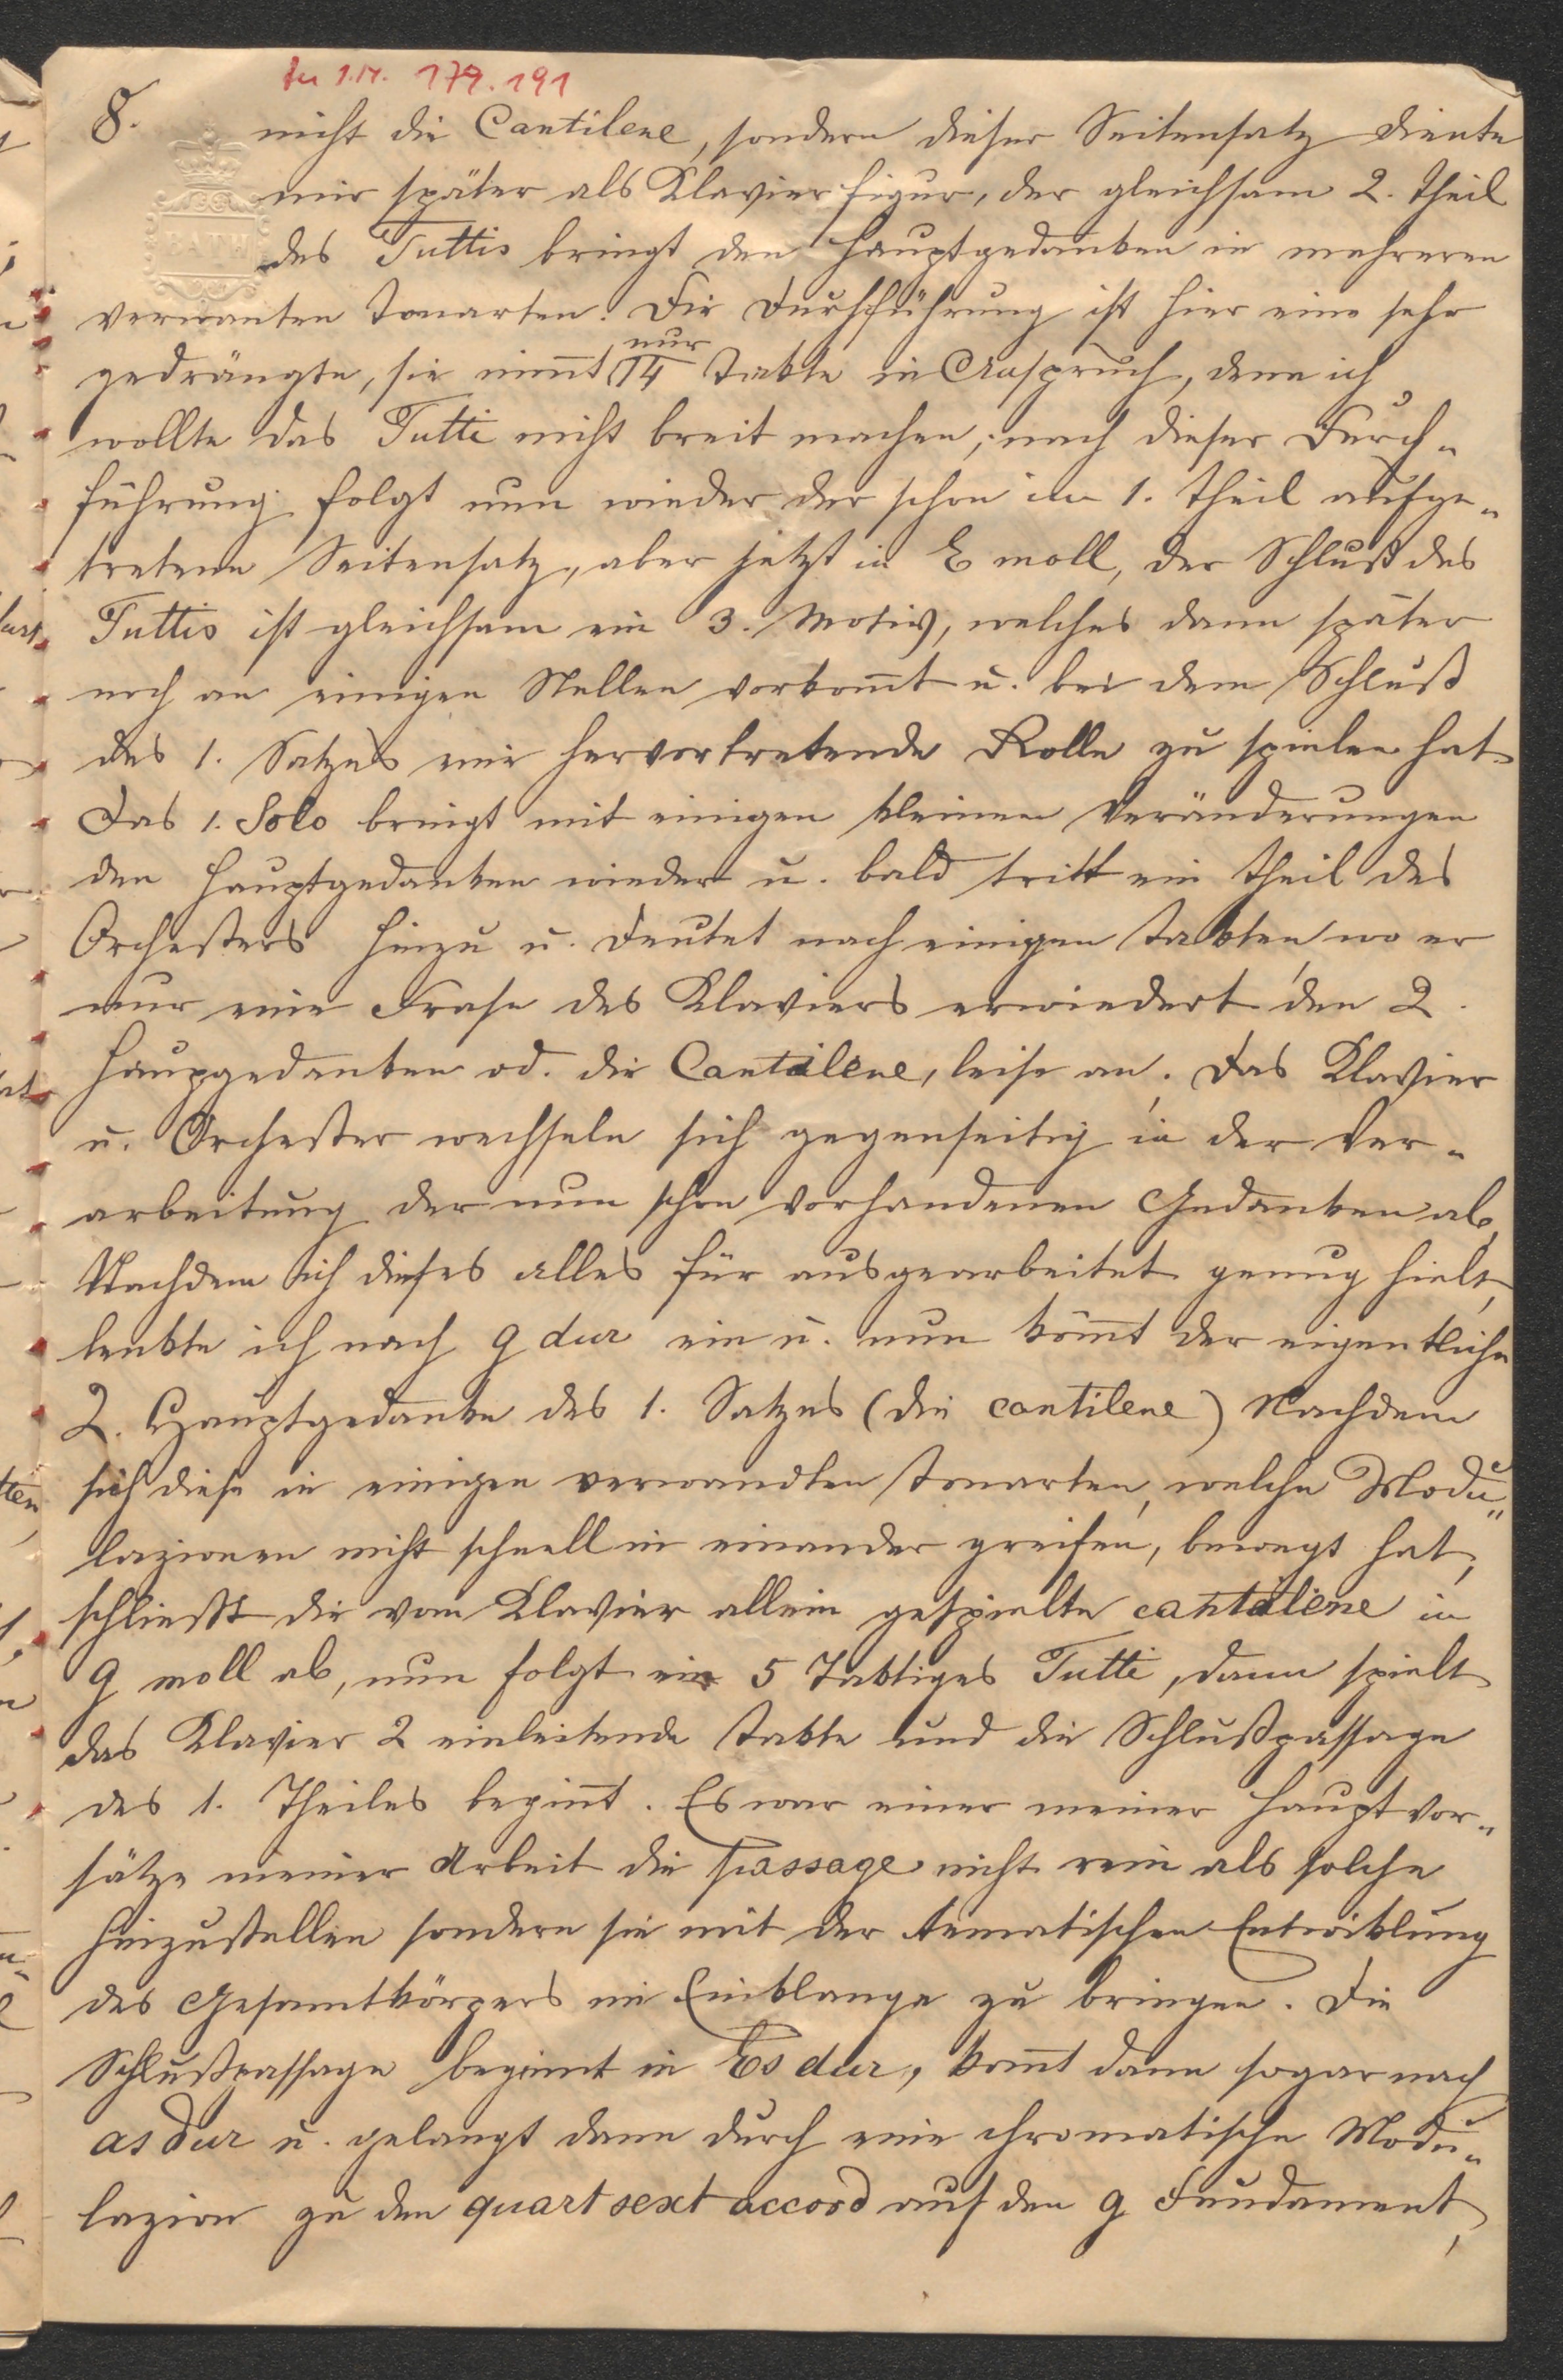 179. 191
8.
nicht die Cantilene, sondern dieser Seitensatz diente
mir später als Klavierfigur, der gleichsam 2. Theil
des Tuttis bringt den Hauptgedanken in mehreren
verwanten Tonarten. Die Durchführung ist hier eine sehr
nur
gedrängte, sie nim̄t 14 Takte in Anspruch, denn ich
wollte das Tutti nicht breit machen, nach dieser Durch-
führung folgt nun wieder der schon im 1. Theil aufge-
tretene Seitensatz, aber jetzt in E moll, der Schluß des
Tuttis ist gleichsam ein 3. Motiv, welches dann später
noch an einigen Stellen vorkom̄t u. bei dem Schluß
des 1. Satzes eine hervortretende Rolle zu spielen hat.
Das 1. Solo bringt mit einigen kleinen Veränderungen
den Hauptgedanken wieder u. bald tritt ein Theil des
Orchesters hinzu u. deutet nach einigen Takten, wo er
nur eine Frase des Klaviers erwiedert den 2.
Haupgedanken od. die Cantilene, leise an. Das Klavier
u. Orchester wechseln sich gegenseitig in der Ver-
arbeitung der nun schon vorhandenen Gedanken ab,
Nachdem ich dieses alles für ausgearbeitet genug hielt,
lenkte ich nach g dur ein u. nun köm̄t der eigentliche
2. Hauptgedanke des 1. Satzes (die cantilene) Nachdem
sich diese in einigen verwandten Tonarten, welche Modu-
lazionen nicht schnell in einander greifen, bewegt hat,
schließt die vom Klavier allein gespielte cantilene in
g moll ab, nun folgt ein 5 Taktiges Tutti, dann spielt
das Klavier 2 einleitende Takte und die Schlußpassage
des 1. Theiles begin̄t. Es war einer meiner Hauptvor-
sätze meiner Arbeit die Passage nicht rein als solche
hinzustellen sondern sie mit der tematischen Entwiklung
des Gesamtkörpers im Einklange zu bringen. Die
Schlußpassage beginnt in Es dur, kom̄t dann sogar nach
as dur u. gelangt dann durch eine chromatische Modu-
lazion zu den quart sext accord auf den g Fundament,